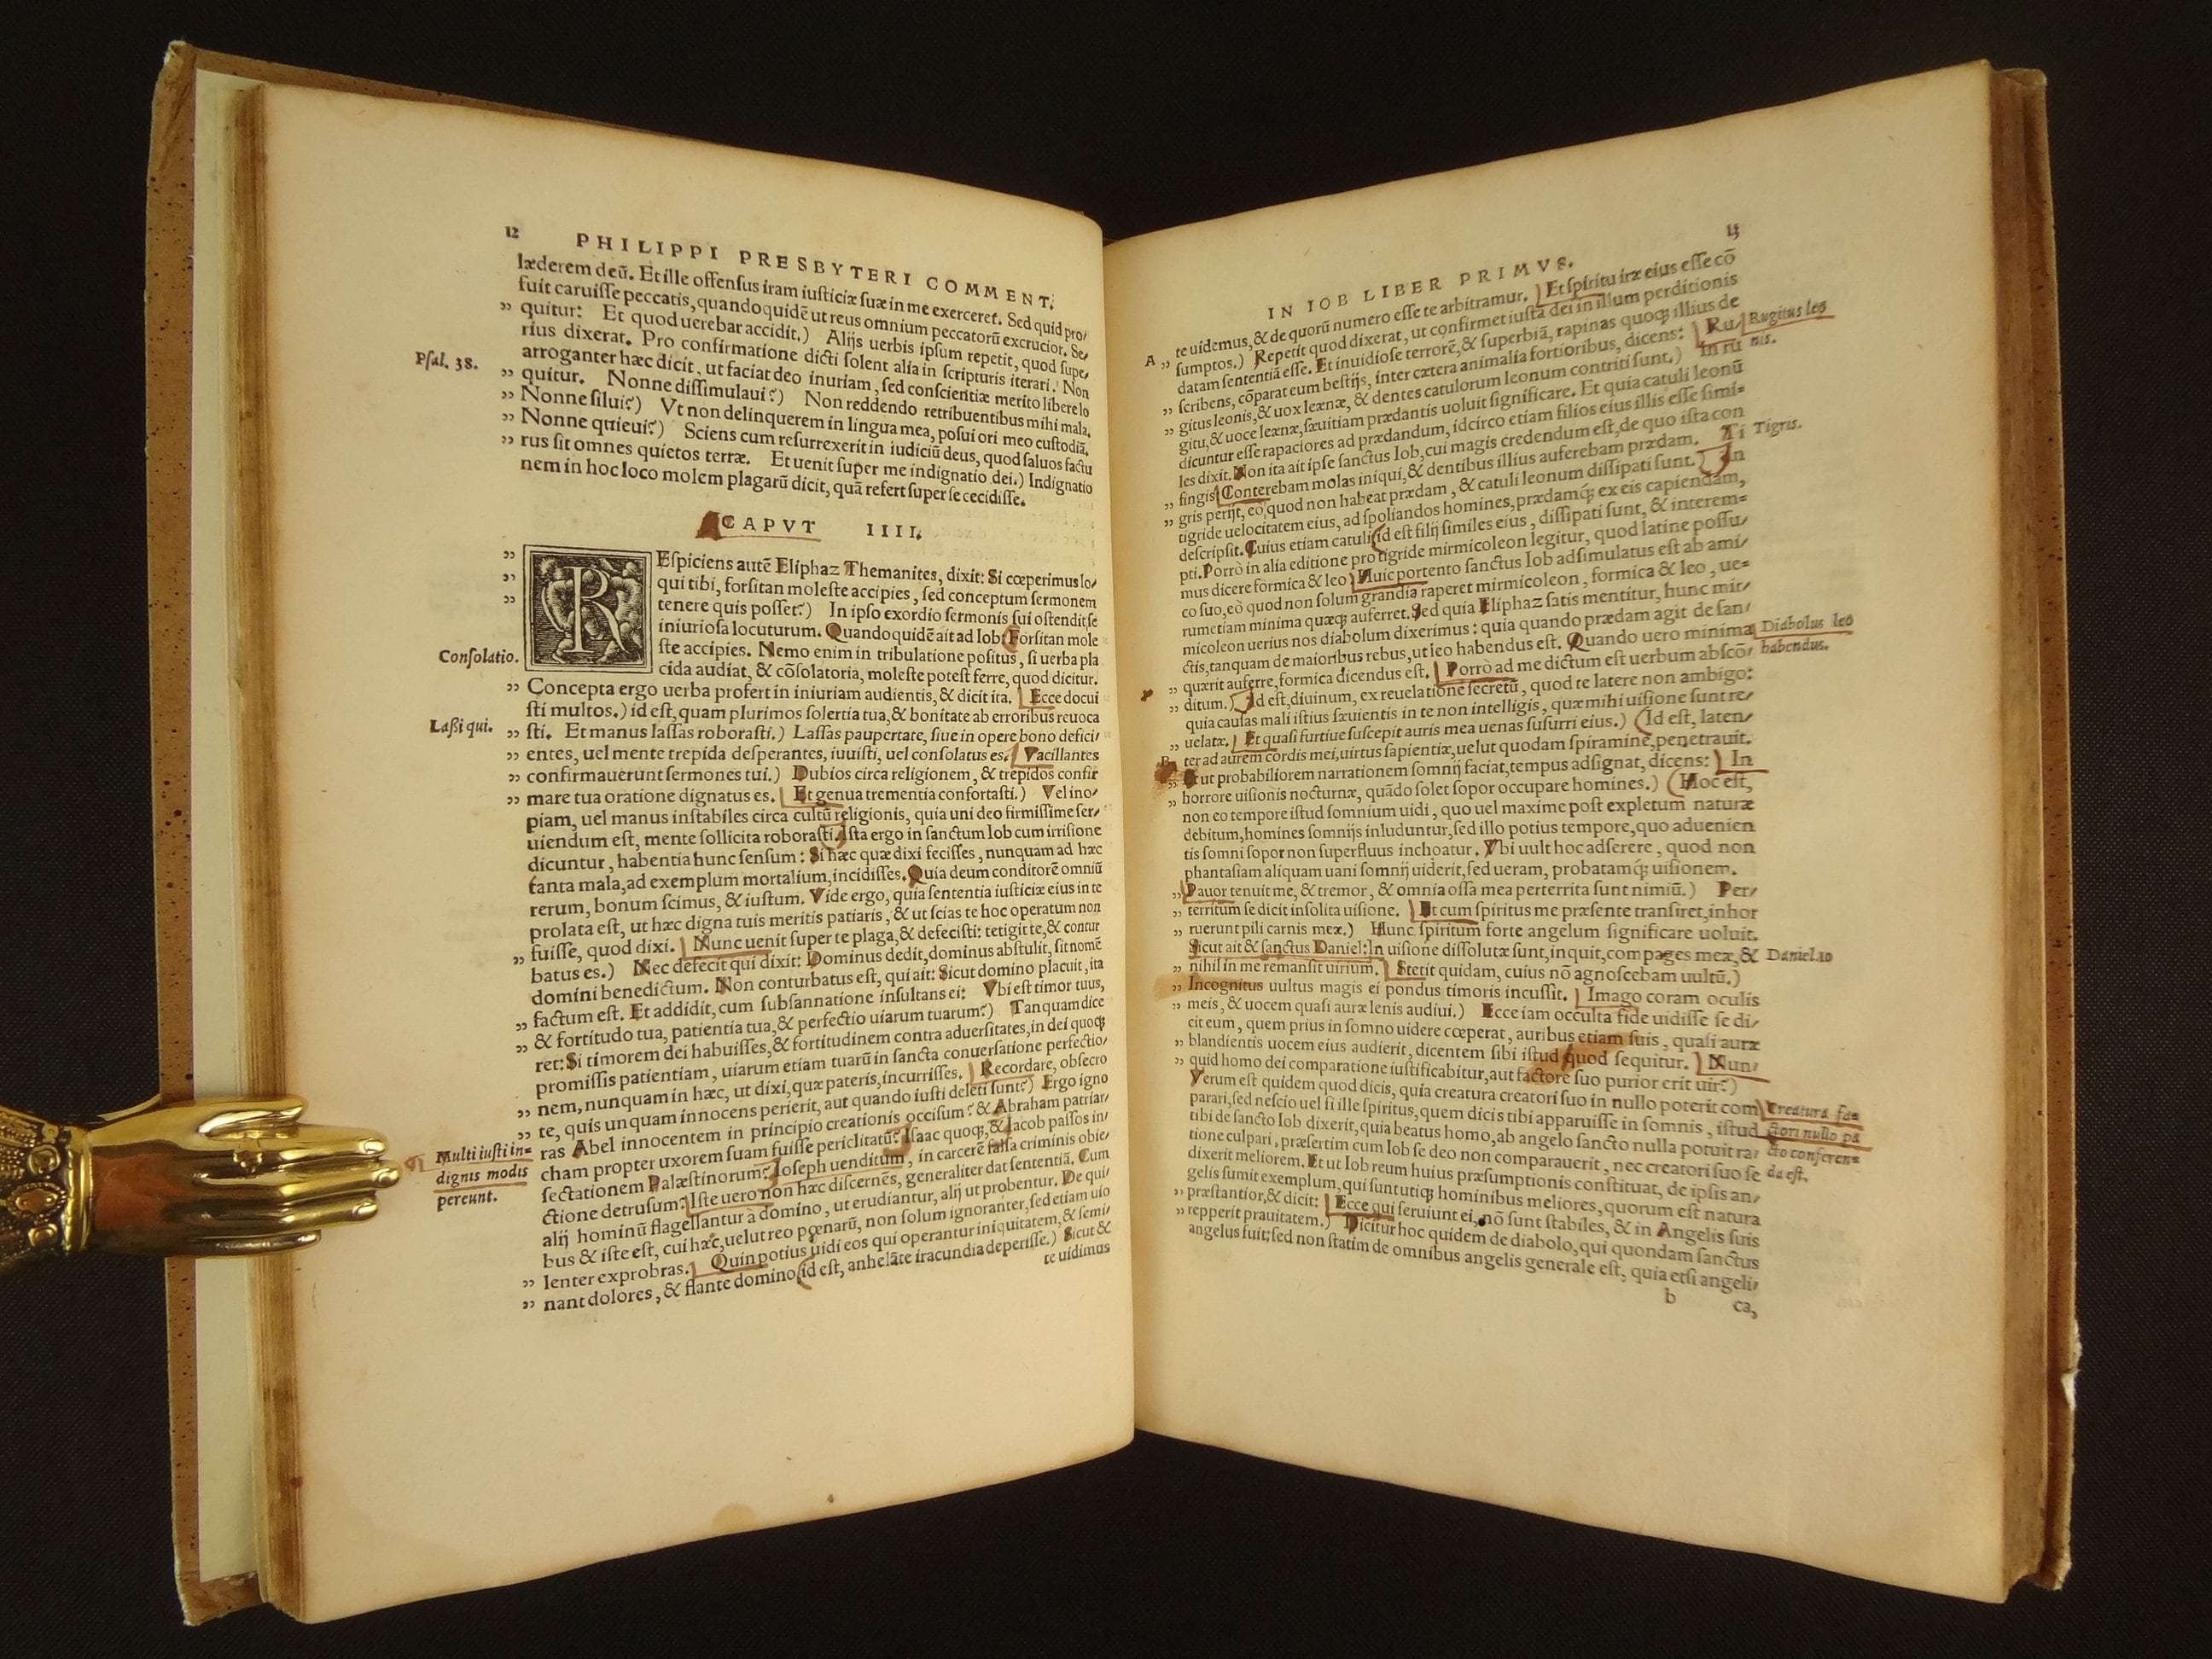 12 PHILIPPI PRESBYTERI COMMENT.
læderem deũ. Et ille offensus iram iusticiæ suæ in me exerceret. Sed quid pro/
fuit caruisse peccatis, quandoquidẽ ut reus omnium peccatorũ excrucior. Se/
„ quitur: Et quod uerebar accidit.) Alijs uerbis ipsum repetit, quod supe/
rius dixerat. Pro confirmatione dicti solent alia in scripturis iterari. Non
arroganter hæc dicit, ut faciat deo iniuriam, sed conscientiæ merito libere lo
Psal. 38.
„ quitur. Nonne dissimulaui?) Non reddendo retribuentibus mihi mala.
„ Nonne silui?) Vt non delinquerem in lingua mea, posui ori meo custodiã.
„ Nonne quieui?) Sciens cum resurrexerit in iudiciũ deus, quod saluos factu
„ rus sit omnes quietos terræ. Et uenit super me indignatio dei.) Indignatio
nem in hoc loco molem plagarũ dicit, quã refert super se cecidisse.
CAPVT IIII.
„ REspiciens autẽ Eliphaz Themanites, dixit: Si cœperimus lo/
„ qui tibi, forsitan moleste accipies, sed conceptum sermonem
„ tenere quis posset?) In ipso exordio sermonis sui ostendit se
iniuriosa locuturum. Quandoquidẽ ait ad Iob: Forsitan mole
ste accipies. Nemo enim in tribulatione positus, si uerba pla
Consolatio.
cida audiat, & cõsolatoria, moleste potest ferre, quod dicitur.
„ Concepta ergo uerba profert in iniuriam audientis, & dicit ita. Ecce docui
sti multos.) id est, quam plurimos solertia tua, & bonitate ab erroribus reuoca
Laßi qui.
„ sti. Et manus lassas roborasti.) Lassas paupertate, siue in opere bono defici/
„ entes, uel mente trepida desperantes, iuuisti, uel consolatus es. Vacillantes
„ confirmauerunt sermones tui.) Dubios circa religionem, & trepidos confir
„ mare tua oratione dignatus es. Et genua trementia confortasti.) Vel ino/
piam, uel manus instabiles circa cultũ religionis, quia uni deo firmissime ser/
uiendum est, mente sollicita roborasti. Ista ergo in sanctum Iob cum irrisione
dicuntur, habentia hunc sensum: Si hæc quæ dixi fecisses, nunquam ad hæc
tanta mala, ad exemplum mortalium, incidisses. Quia deum conditorẽ omniũ
rerum, bonum scimus, & iustum. Vide ergo, quia sententia iusticiæ eius in te
prolata est, ut hæc digna tuis meritis patiaris, & ut scias te hoc operatum non
„ fuisse, quod dixi. Nunc uenit super te plaga, & defecisti: tetigit te, & contur
batus es.) Nec defecit qui dixit: Dominus dedit, dominus abstulit, sit nomẽ
domini benedictum. Non conturbatus est, qui ait: Sicut domino placuit, ita
„ factum est. Et addidit, cum subsannatione insultans ei: Vbi est timor tuus,
„ & fortitudo tua, patientia tua, & perfectio uiarum tuarum?) Tanquam dice
ret: Si timorem dei habuisses, & fortitudinem contra aduersitates, in dei quoqꝫ
promissis patientiam, uiarum etiam tuarũ in sancta conuersatione perfectio/
„ nem, nunquam in hæc, ut dixi, quæ pateris, incurrisses. Recordare, obsecro
„ te, quis unquam innocens perierit, aut quando iusti deleti sunt?) Ergo igno
Multi iusti in=
dignis modis
pereunt.
ras Abel innocentem in principio creationis occisum? & Abraham patriar/
cham propter uxorem suam fuisse periclitatũ? Isaac quoqꝫ, & Iacob passos in/
sectationem Palæstinorum? Ioseph uenditum, in carcerẽ falsa criminis obie/
ctione detrusum? Iste uero non hæc discernẽs, generaliter dat sententiã. Cum
alij hominũ flagellantur à domino, ut erudiantur, alij ut probentur. De qui/
bus & iste est, cui hæc, uelut reo pœnarũ, non solum ignoranter, sed etiam uio
„ lenter exprobras. Quin potius uidi eos qui operantur iniquitatem, & semi/
„ nant dolores, & flante domino (id est, anhelãte iracundia deperisse.) Sicut &
te uidimus
IN IOB LIBER PRIMVS. 13
te uidemus, & de quorũ numero esse te arbitramur. Et spiritu iræ eius esse cõ
A „ sumptos.) Repetit quod dixerat, ut confirmet iustã dei in illum perditionis
datam sententiã esse. Et inuidiose terrorẽ, & superbiã, rapinas quoqꝫ illius de
„ scribens, cõparat eum bestijs, inter cætera animalia fortioribus, dicens: Ru/
Rugitus leo
nis.
„ gitus leonis, & uox leænæ, & dentes catulorum leonum contriti sunt.) In ru
gitu, & uoce leænæ, sæuitiam prædantis uoluit significare. Et quia catuli leonũ
dicuntur esse rapaciores ad prædandum, idcirco etiam filios eius illis esse simi=
les dixit. Non ita ait ipse sanctus Iob, cui magis credendum est, de quo ista con
„ fingis: Conterebam molas iniqui, & dentibus illius auferebam prædam. Ti
Tigris.
„ gris perijt, eo quod non habeat prædam, & catuli leonum dissipati sunt.) In
tigride uelocitatem eius, ad spoliandos homines, prædamqꝫ ex eis capiendam,
descripsit. Cuius etiam catuli (id est filij similes eius, dissipati sunt, & interem=
pti. Porrò in alia editione pro tigride mirmicoleon legitur, quod latine possu/
mus dicere formica & leo. Huic portento sanctus Iob adsimulatus est ab ami/
co suo, eò quod non solum grandia raperet mirmicoleon, formica & leo, ue=
rumetiam minima quæqꝫ auferret. Sed quia Eliphaz satis mentitur, hunc mir/
micoleon uerius nos diabolum dixerimus: quia quando prædam agit de san/
ctis, tanquam de maioribus rebus, ut leo habendus est. Quando uero minima
Diabolus leo
habendus.
„ quærit auferre, formica dicendus est. Porrò ad me dictum est uerbum abscõ/
„ ditum.) Id est, diuinum, ex reuelatione secretũ, quod te latere non ambigo:
quia causas mali istius sæuientis in te non intelligis, quæ mihi uisione sunt re/
„ uelatæ. Et quasi furtiue suscepit auris mea uenas susurri eius.) (Id est, laten/
B ter ad aurem cordis mei, uirtus sapientiæ, uelut quodam spiramine, penetrauit.
„ Et ut probabiliorem narrationem somnij faciat, tempus adsignat, dicens: In
„ horrore uisionis nocturnæ, quãdo solet sopor occupare homines.) (Hoc est,
non eo tempore istud somnium uidi, quo uel maxime post expletum naturæ
debitum, homines somnijs inluduntur, sed illo potius tempore, quo aduenien
tis somni sopor non superfluus inchoatur. Vbi uult hoc adserere, quod non
phantasiam aliquam uani somnij uiderit, sed ueram, probatamqꝫ uisionem.
„ Pauor tenuit me, & tremor, & omnia ossa mea perterrita sunt nimiũ.) Per/
„ territum se dicit insolita uisione. Et cum spiritus me præsente transiret, inhor
„ ruerunt pili carnis meæ.) Hunc spiritum forte angelum significare uoluit.
Sicut ait & sanctus Daniel: In uisione dissolutæ sunt, inquit, compages meæ, &
Daniel. 10
„ nihil in me remansit uirium. Stetit quidam, cuius nõ agnoscebam uultũ.)
„ Incognitus uultus magis ei pondus timoris incussit. Imago coram oculis
„ meis, & uocem quasi auræ lenis audiui.) Ecce iam occulta fide uidisse se di/
cit eum, quem prius in somno uidere cœperat, auribus etiam suis, quasi auræ
„ blandientis uocem eius audierit, dicentem sibi istud quod sequitur. Nun/
„ quid homo dei comparatione iustificabitur, aut factore suo purior erit uir?)
Verum est quidem quod dicis, quia creatura creatori suo in nullo poterit com
Creatura fa=
ctori nullo pa
cto conferen=
da est.
parari, sed nescio uel si ille spiritus, quem dicis tibi apparuisse in somnis, istud
tibi de sancto Iob dixerit, quia beatus homo, ab angelo sancto nulla potuit ra/
tione culpari, præsertim cum Iob se deo non comparauerit, nec creatori suo se
dixerit meliorem. Et ut Iob reum huius præsumptionis constituat, de ipsis an/
gelis sumit exemplum, qui sunt utiqꝫ hominibus meliores, quorum est natura
„ præstantior, & dicit: Ecce qui seruiunt ei, nõ sunt stabiles, & in Angelis suis
„ repperit prauitatem.) Dicitur hoc quidem de diabolo, qui quondam sanctus
angelus fuit; sed non statim de omnibus angelis generale est, quia etsi angeli/
b ca,